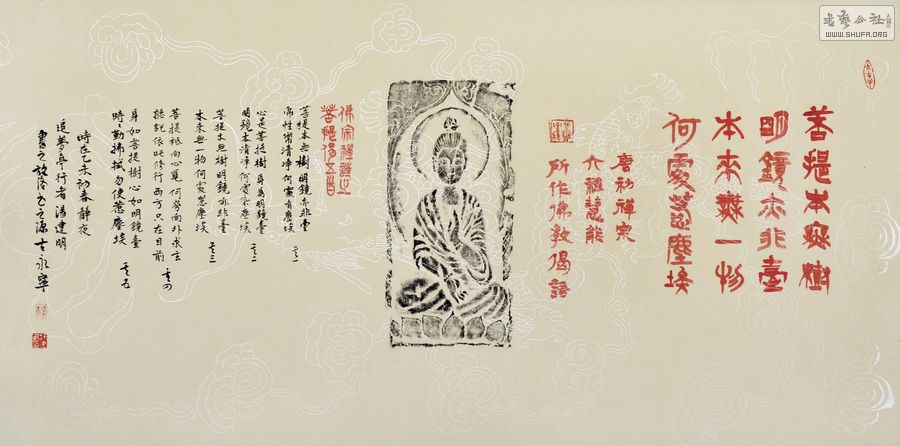 書藝公社
WWW.SHUFA.ORG
菩提本無樹
明鏡亦非臺
本來無一物
何處惹塵埃
唐初禪宗
六祖慧能
所作佛教偈語
佛宗禪語之
菩提偈五首
菩提本無樹 明鏡亦非臺
佛性常清凈 何處有塵埃 其一
心是菩提樹 身為明鏡臺
明鏡本清凈 何處染塵埃 其二
菩提本無樹 明鏡亦非臺
本來無一物 何處惹塵埃 其三
菩提祇向心覓 何勞向外求玄
聽說依此修行 西方只在目前 其四
身如菩提樹 心如明鏡臺
時々勤拂拭 勿使惹塵埃 其五
時在乙未初春静夜
追夢亭行者湯建明
書之於洛书之源古永寧